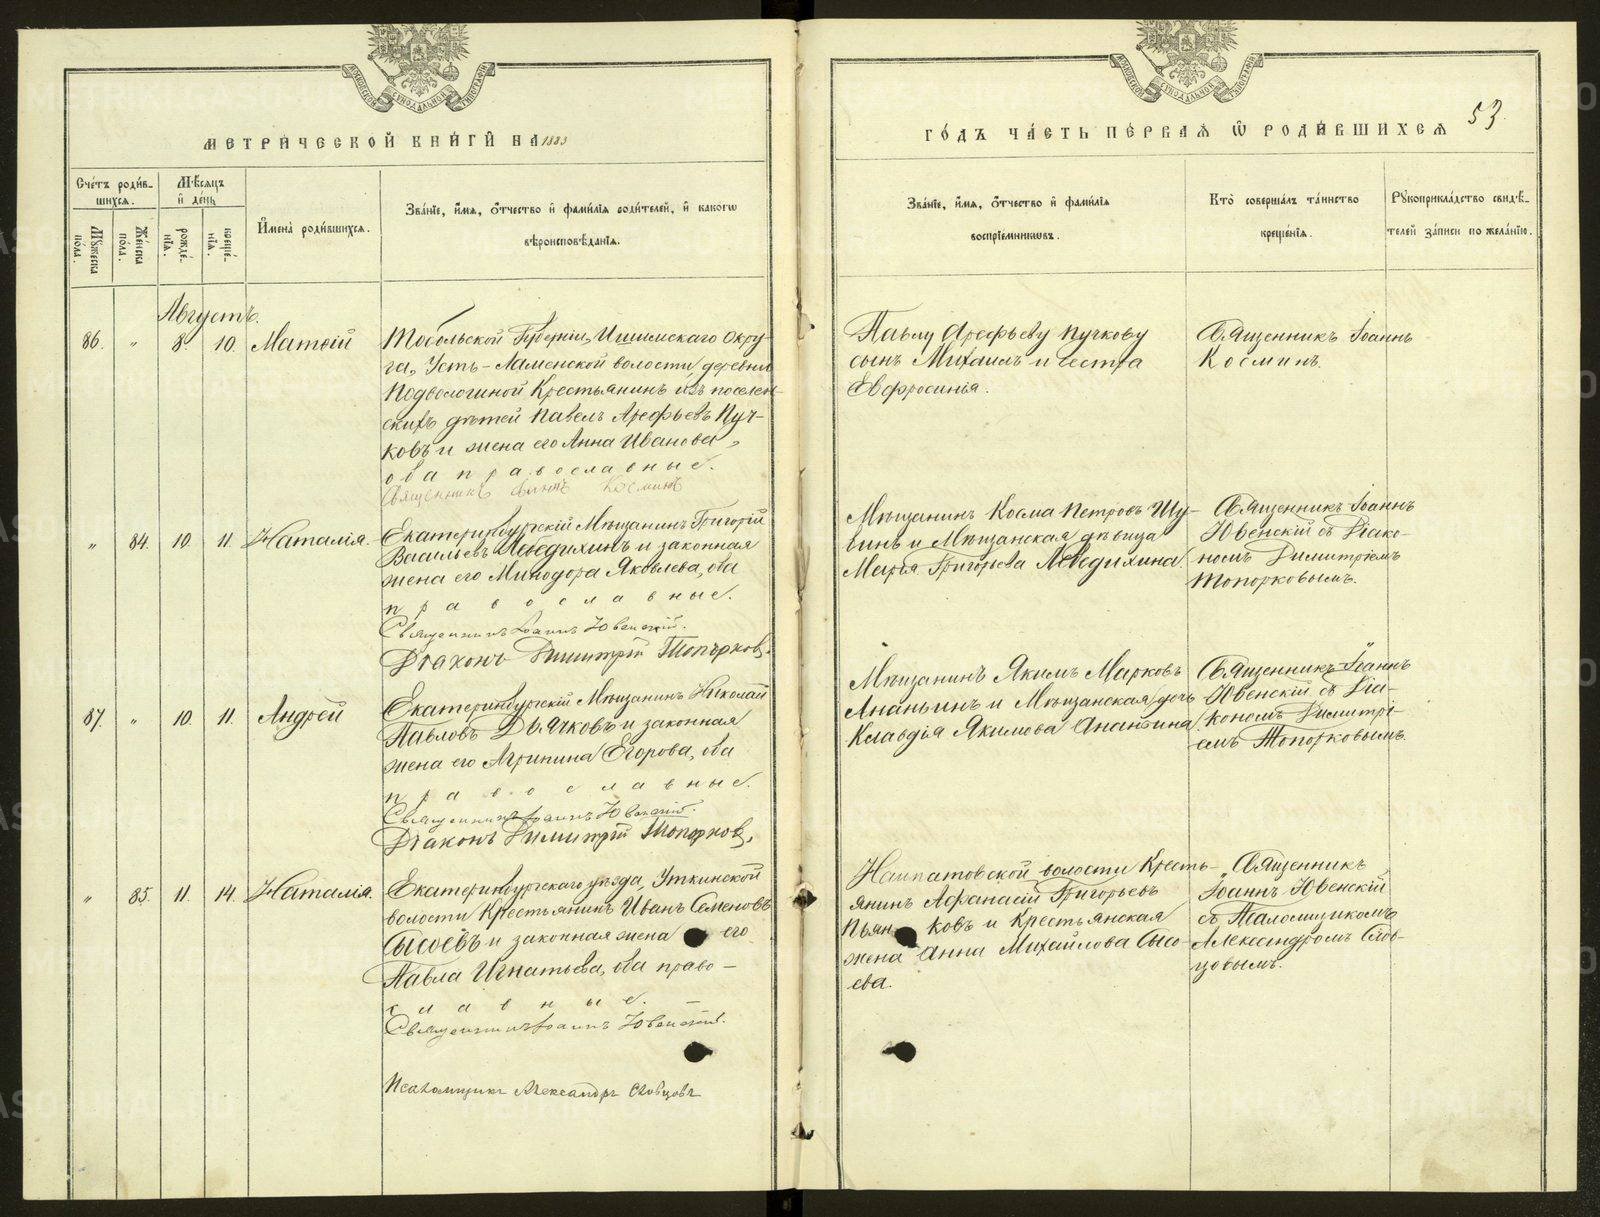 МЕТРИЧЕСКОЙ КНИГИ НА 1883
ГОДЪ ЧАСТЬ ПЕРВАЯ Ѿ РОДИВШИХСЯ
53.
Счетъ родив-
шихся.
Мѣсяцъ
и день
Мужеска пола.
Женска пола.
рожде-
нія.
креще-
нія.
Имена родившихся.
Званіе, имя, отчество и фамилія родителей, и какого
вѣроисповѣданія.
Званіе, имя, отчество и фамилія
воспріемниковъ.
Кто совершалъ таинство
крещенія.
Рукоприкладство свидѣ-
телей записи по желанію.
Августъ.
86. " 8 10. Матѳій
Тобольской Губерніи, Ишимскаго Окру-
га, Усть-Ламенской волости, деревни
Подвологиной Крестьянинъ изъ поселен-
скихъ дѣтей Павелъ Арефьевъ Пуч-
ковъ и жена его Анна Иванова,
оба православные.
Священникъ Іоаннъ Косминъ
Павлу Арефьеву Пучкову
сынъ Михаилъ и сестра
Евфросинія.
Священникъ Іоаннъ
Косминъ.
" 84. 10. 11. Наталія.
Екатеринбургскій Мѣщанинъ Григорій
Васильевъ Лебедихинъ и законная
жена его Минодора Яковлева, оба
православные.
Священникъ Іоаннъ Ювенскій.
Діаконъ Димитрій Топорковъ.
Мѣщанинъ Косма Петровъ Шу-
винъ и Мѣщанская дѣвица
Марья Григорьева Лебедихина.
Священникъ Іоаннъ
Ювенскій съ Діако-
номъ Димитріемъ
Топорковымъ.
87. " 10. 11. Андрей
Екатеринбургскій Мѣщанинъ Николай
Павловъ Дьячковъ и законная
жена его Агрипина Егорова, оба
православные.
Священникъ Іоаннъ Ювенскій.
Діаконъ Димитрій Топорковъ.
Мѣщанинъ Якимъ Марковъ
Ананьинъ и Мѣщанская дочь
Клавдія Якимова Ананьина.
Священникъ Іоаннъ
Ювенскій съ Діа-
кономъ Димитрі-
емъ Топорковымъ.
" 85. 11. 14. Наталія.
Екатеринбургскаго уѣзда, Уткинской
волости Крестьянинъ Иванъ Семеновъ
Сысоевъ и законная жена его
Павла Игнатьева, оба право-
славные.
Священникъ Іоаннъ Ювенскій.
Псаломщикъ Александръ Словцовъ
волости Кресть-
янинъ Афанасій Григорьевъ
Пьян ковъ и Крестьянская
жена Анна Михайлова Сысо-
ева.
Священникъ
Іоаннъ Ювенскій
съ Псаломщикомъ
Александромъ Слов-
цовымъ.